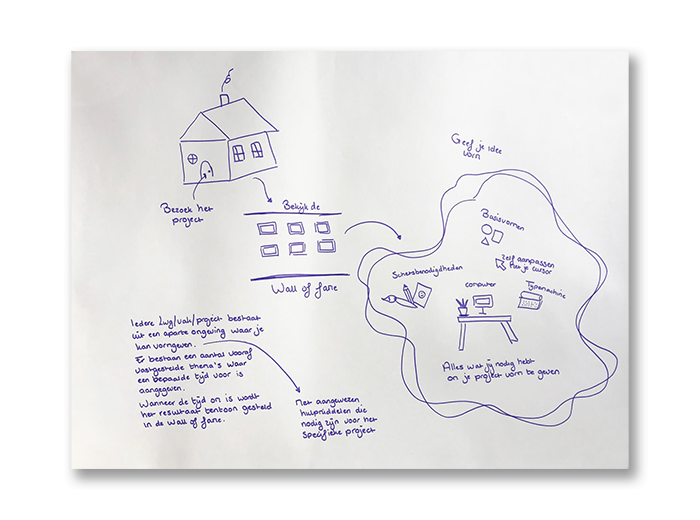 Bezoek het
project
Bekijk de
Wall of fame
Geef je idee
vorm
Basisvormen
zelf aanpassen
met je cursor
Schetsbenodigdheden
computer
Typemachine
Alles wat jij nodig hebt
om je project vorm te geven
Iedere / vak / project bestaat
uit een aparte omgeving waar je
kan vormgeven.
Er bestaan een aantal vooraf
vastgestelde thema's waar
een bepaalde tijd voor is
aangegeven.
Wanneer de tijd om is wordt
het resultaat tentoon gesteld
in de Wall of fame.
Met aangewezen
hulpmiddelen die
nodig zijn voor het
specifieke project